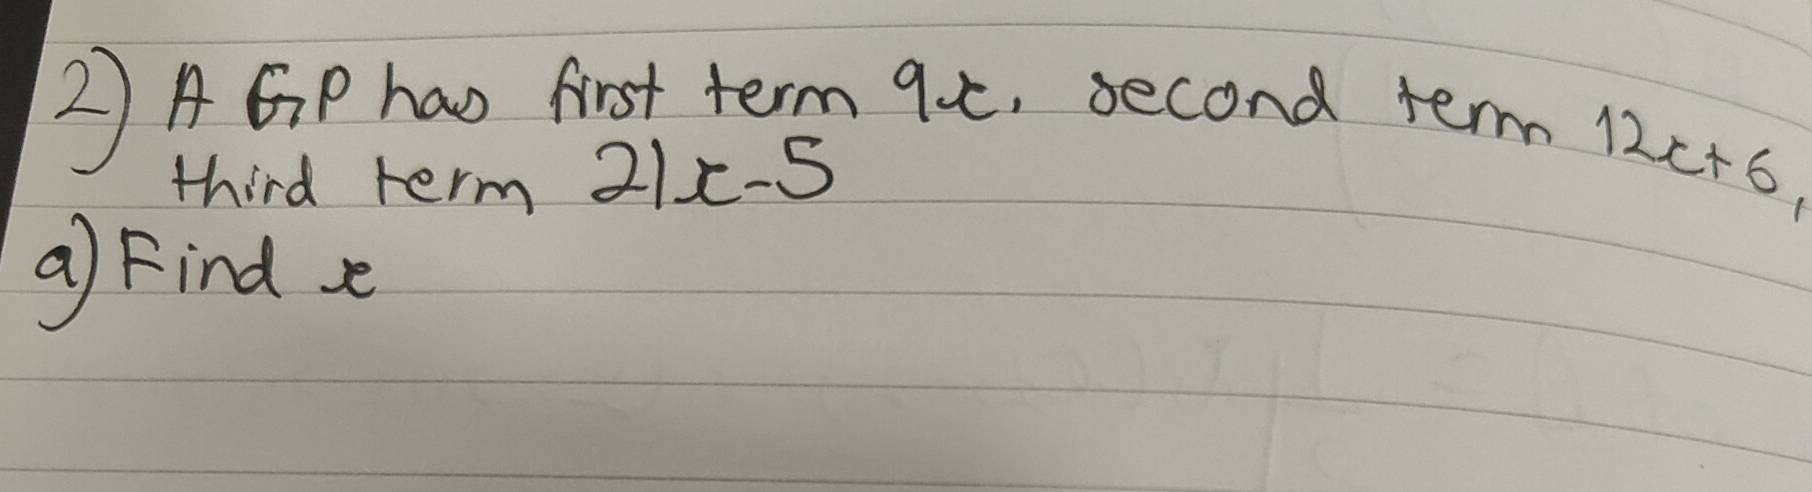 2) A GP has first term 9x, second term 12x+6,
third term 21x-5
a) Find x